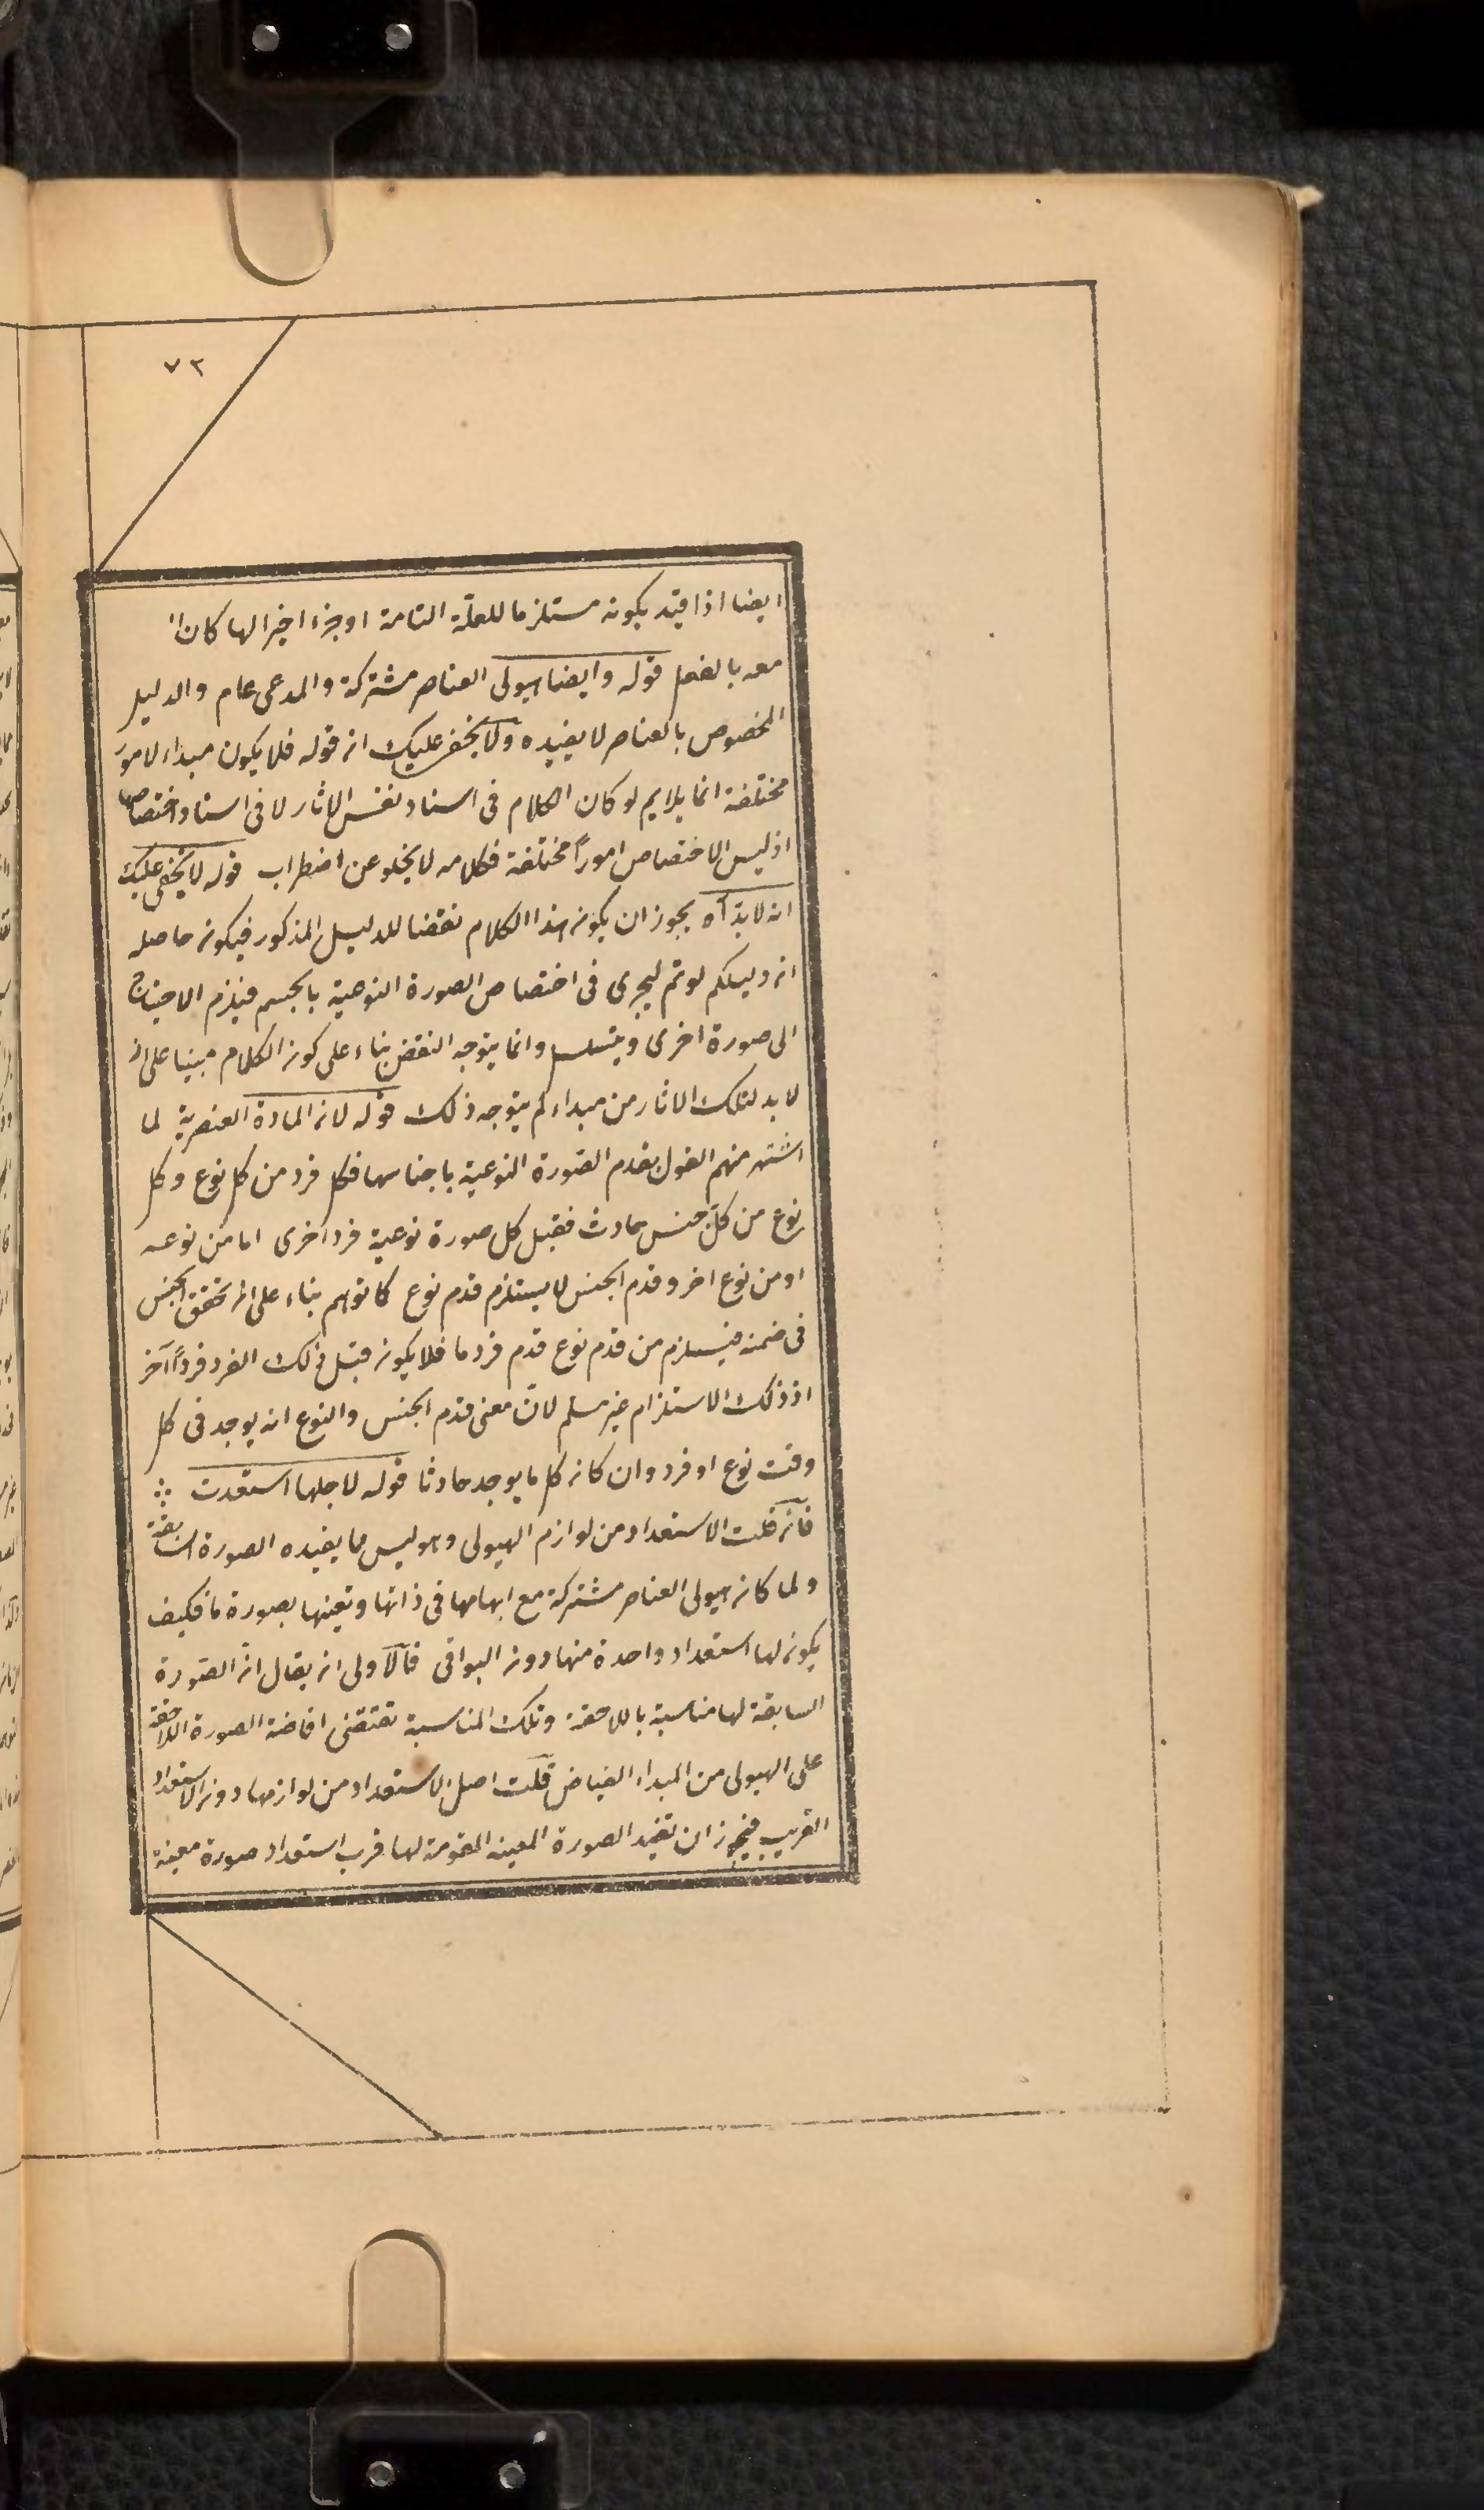 ٧٢
ايضا اذا قيد بكونه مستلزما للعلة التامة او جزءا اخيرا لها كان
معه بالفعل قوله وايضا هيولى العناصر مشتركة والمدعى عام والدليل
المخصوص بالعناصر لا يفيده ولا يخفى عليك ان قوله فلا يكون مبداء لامور
مختلفة انما يلايم لو كان الكلام فى اسناد نفس الاثار لا فى اسناد اختصاصها
اذ ليس الاختصاص اموراً مختلفة فكلامه لا يخلو عن اضطراب قوله لا يخفى عليك
انه لا بد آه يجوز ان يكون هذا الكلام نقضا للدليل المذكور فيكون حاصله
ان دليلكم لو تم ليجرى فى اختصاص الصورة النوعية بالجسم فيلزم الاحتياج
الى صورة اخرى ويتسلسل وانما يتوجه النقض بناء على كون الكلام مبنيا على ان
لا بد لتلك الاثار من مبداء لم يتوجه ذلك قوله لان المادة العنصرية لما
اشتهر منهم القول بقدم الصورة النوعية باجناسها فكل فرد من كل نوع وكل
نوع من كل جنس حادث فقبل كل صورة نوعية فرد اخرى اما من نوعه
او من نوع اخر وقدم الجنس لا يستلزم قدم نوع كما توهم بناء على ان تحقق الجنس
فى ضمنه فيستلزم من قدم نوع قدم فرد ما فلا يكون قبل ذلك الفرد فرداً آخر
اذ ذلك الاستلزام غير مسلم لانّ معنى قدم الجنس والنوع انه يوجد فى كل
وقت نوع او فرد وان كان كل ما يوجد حادثا قوله لاجلها استعدت
فان قلت الاستعداد من لوازم الهيولى وهو ليس مما يفيده الصورة السابقة
ولما كان هيولى العناصر مشتركة مع ابهامها فى ذاتها وتعينها بصورة ما فكيف
يكون لها استعداد واحدة منها دون البواقى فالاولى ان يقال ان الصورة
السابقة لها مناسبة باللاحقة وتلك المناسبة تقتضى افاضة الصورة اللاحقة
على الهيولى من المبداء الفياض قلت اصل الاستعداد من لوازمها دون الاستعداد
القريب فيجوز ان تفيد الصورة المعينه المقومة لها قرب استعداد صورة معينة